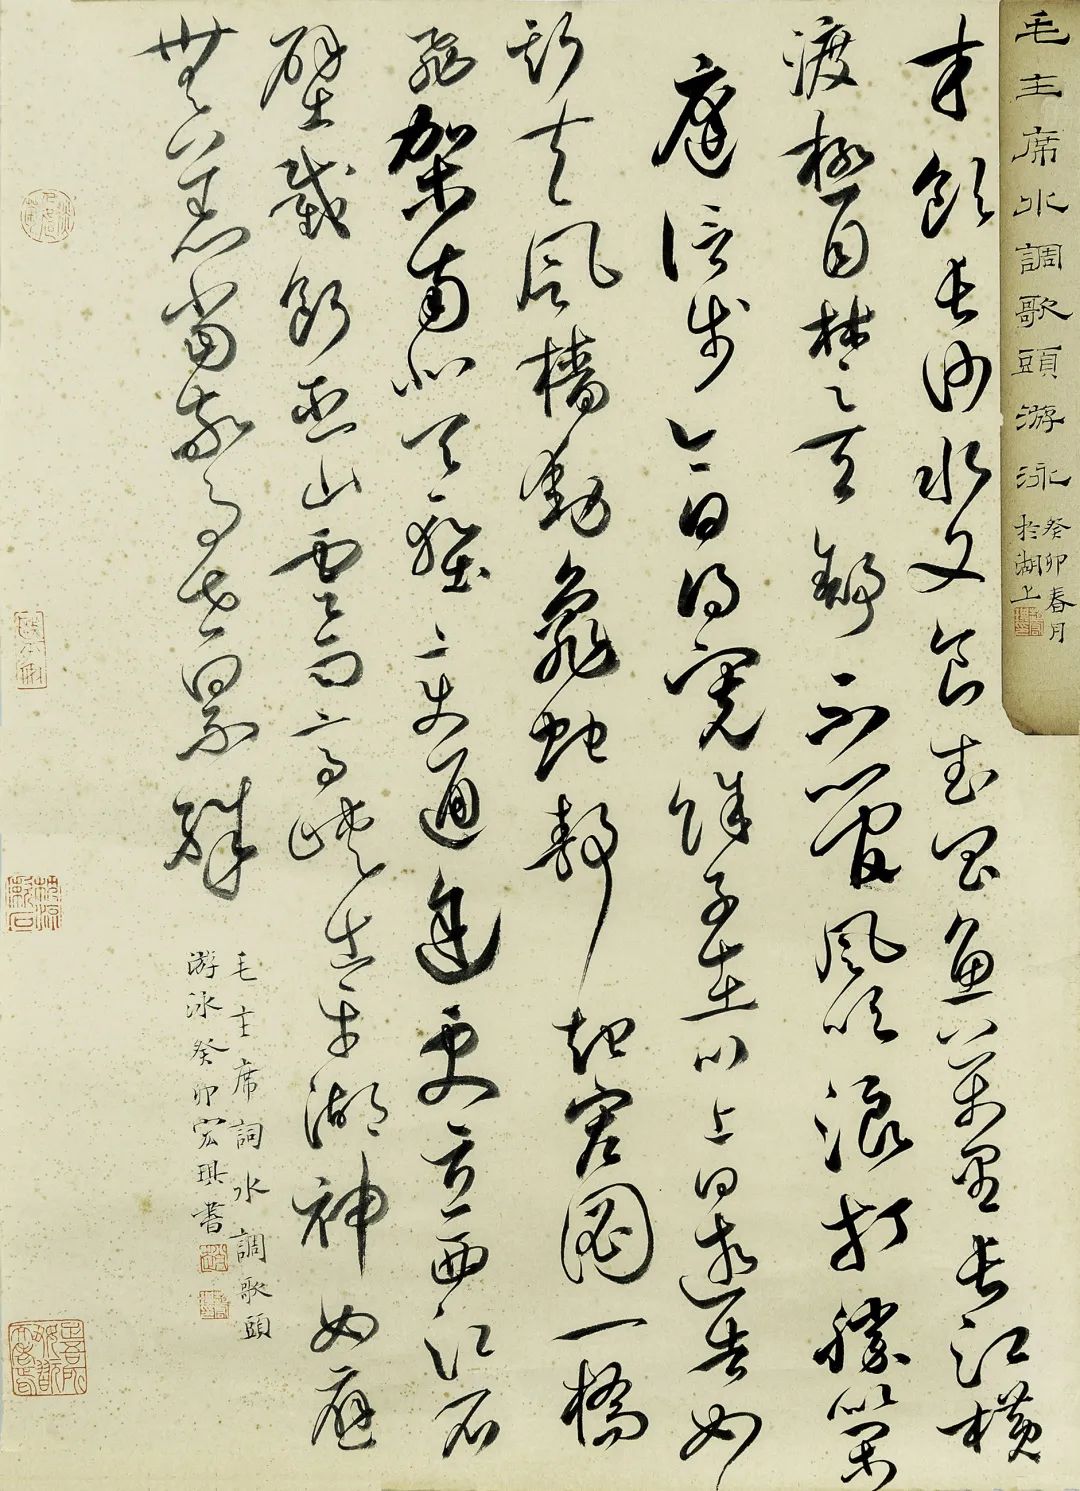 毛主席水調歌頭游泳
癸卯春月
於湖上
才飲長沙水又食武昌魚萬里長江橫
渡極目楚天舒不管風吹浪打勝似閑
庭信步今日得寬餘子在川上曰逝者如
斯夫風檣動龜蛇靜起宏圖一橋
飛架南北天塹變通途更立西江石
壁截斷巫山雲雨高峽出平湖神女應
無恙當驚世界殊
毛主席詞水調歌頭
游泳癸卯宏琪書